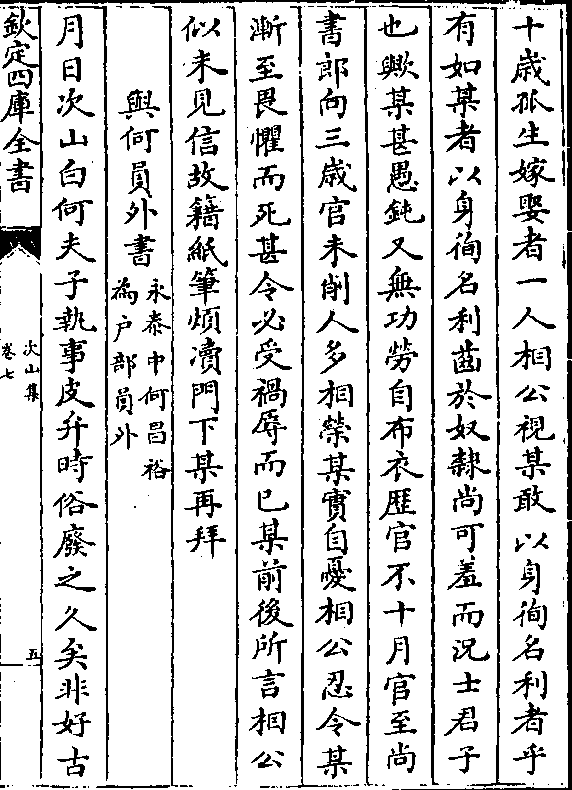 十歳孤生嫁娶者一人相公視某敢以身徇名利者乎
有如某者以身徇名利齒於奴隸尚可羞而況士君子
也歟某甚愚鈍又無功勞自布衣歴官不十月官至尚
書郎向三歳官未削人多相榮某實自憂相公忍令某
漸至畏懼而死甚令必受禍辱而已某前後所言相公
似未見信故籍紙筆煩瀆門下某再拜
與何員外書
永泰中何昌裕
為户部員外
月日次山白何夫子執事皮弁時俗廢之久矣非好古
欽定四庫全書
次山集
卷七
五